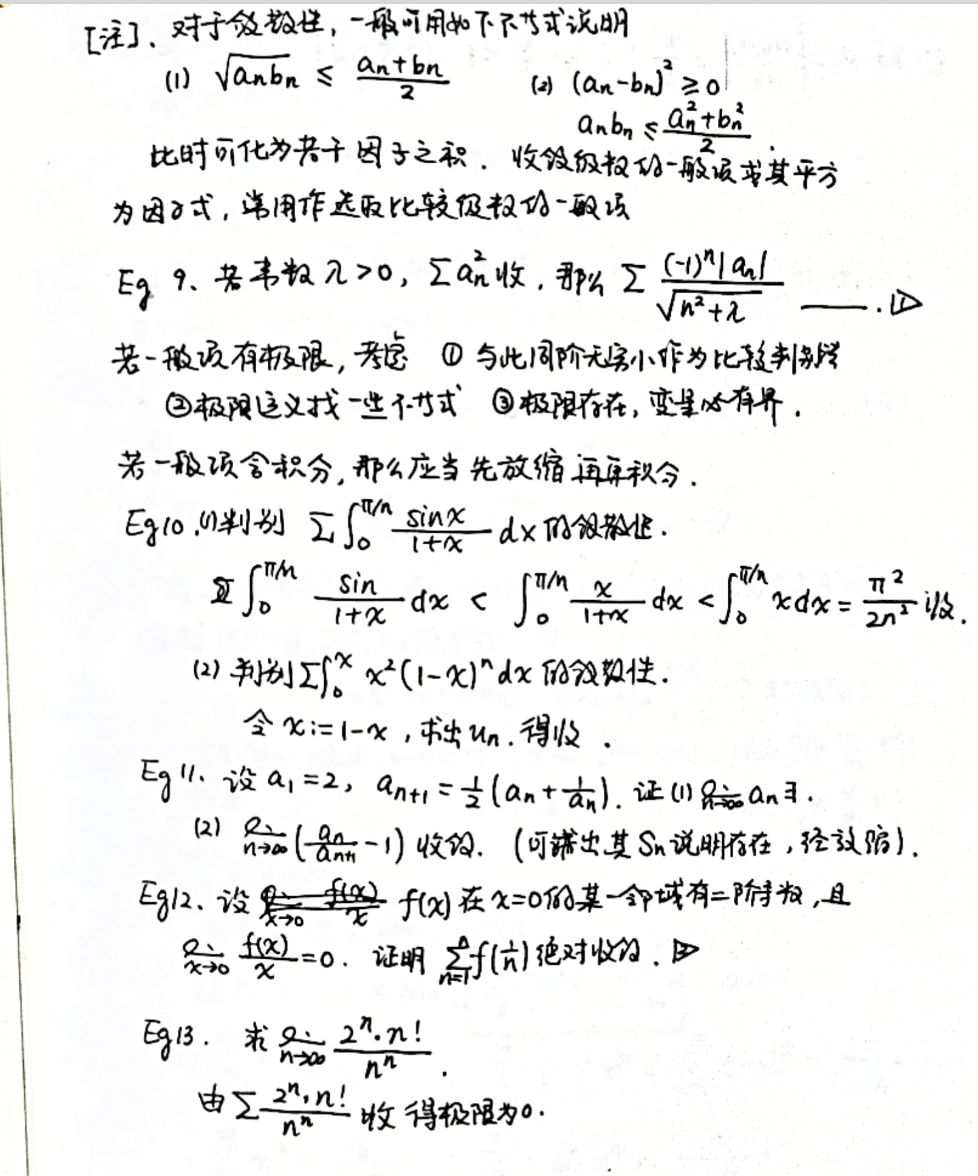 [注]. 对于敛散性, 一般可用如下不等式说明
(1) √(aₙbₙ) ≤ (aₙ+bₙ)/2 (2) (aₙ-bₙ)² ≥ 0
aₙbₙ ≤ (aₙ²+bₙ²)/2.
此时可化为若干因子之积. 收敛级数的一般项或其平方
为因子式, 常用作选取比较级数的一般项
Eg 9. 若常数 λ>0, Σaₙ²收, 那么 Σ (-1)ⁿ|aₙ|/√(n²+λ) ——.
若一般项有极限, 考虑 ① 与此同阶无穷小作为比较判别
②极限定义找一些不等式 ③极限存在, 变量必有界.
若一般项含积分, 那么应当先放缩再积分.
Eg10.(1)判别 Σ∫₀^(π/n) sinx/(1+x) dx 的敛散性.
∫₀^(π/n) sin/(1+x) dx < ∫₀^(π/n) x/(1+x) dx < ∫₀^(π/n) xdx = π²/(2n²) 收.
(2) 判别Σ∫₀^x x²(1-x)ⁿdx 的敛散性.
令 x:=1-x, 求出 uₙ. 得收.
Eg 11. 设 a₁=2, aₙ₊₁=½(aₙ+1/aₙ). 证 (1) lim n→∞ aₙ∃.
(2) lim n→∞ (aₙ/aₙ₊₁ -1) 收敛. (可譜出其 Sₙ 说明存在, 经放缩).
Eg12. 设 f(x) 在 x=0的某一邻域有二阶导数, 且
lim x→0 f(x)/x =0. 证明 Σ n=1 ∞ f(1/n) 绝对收敛.
Eg13. 求 lim n→∞ 2ⁿ·n!/nⁿ.
由 Σ 2ⁿ·n!/nⁿ 收 得极限为0.